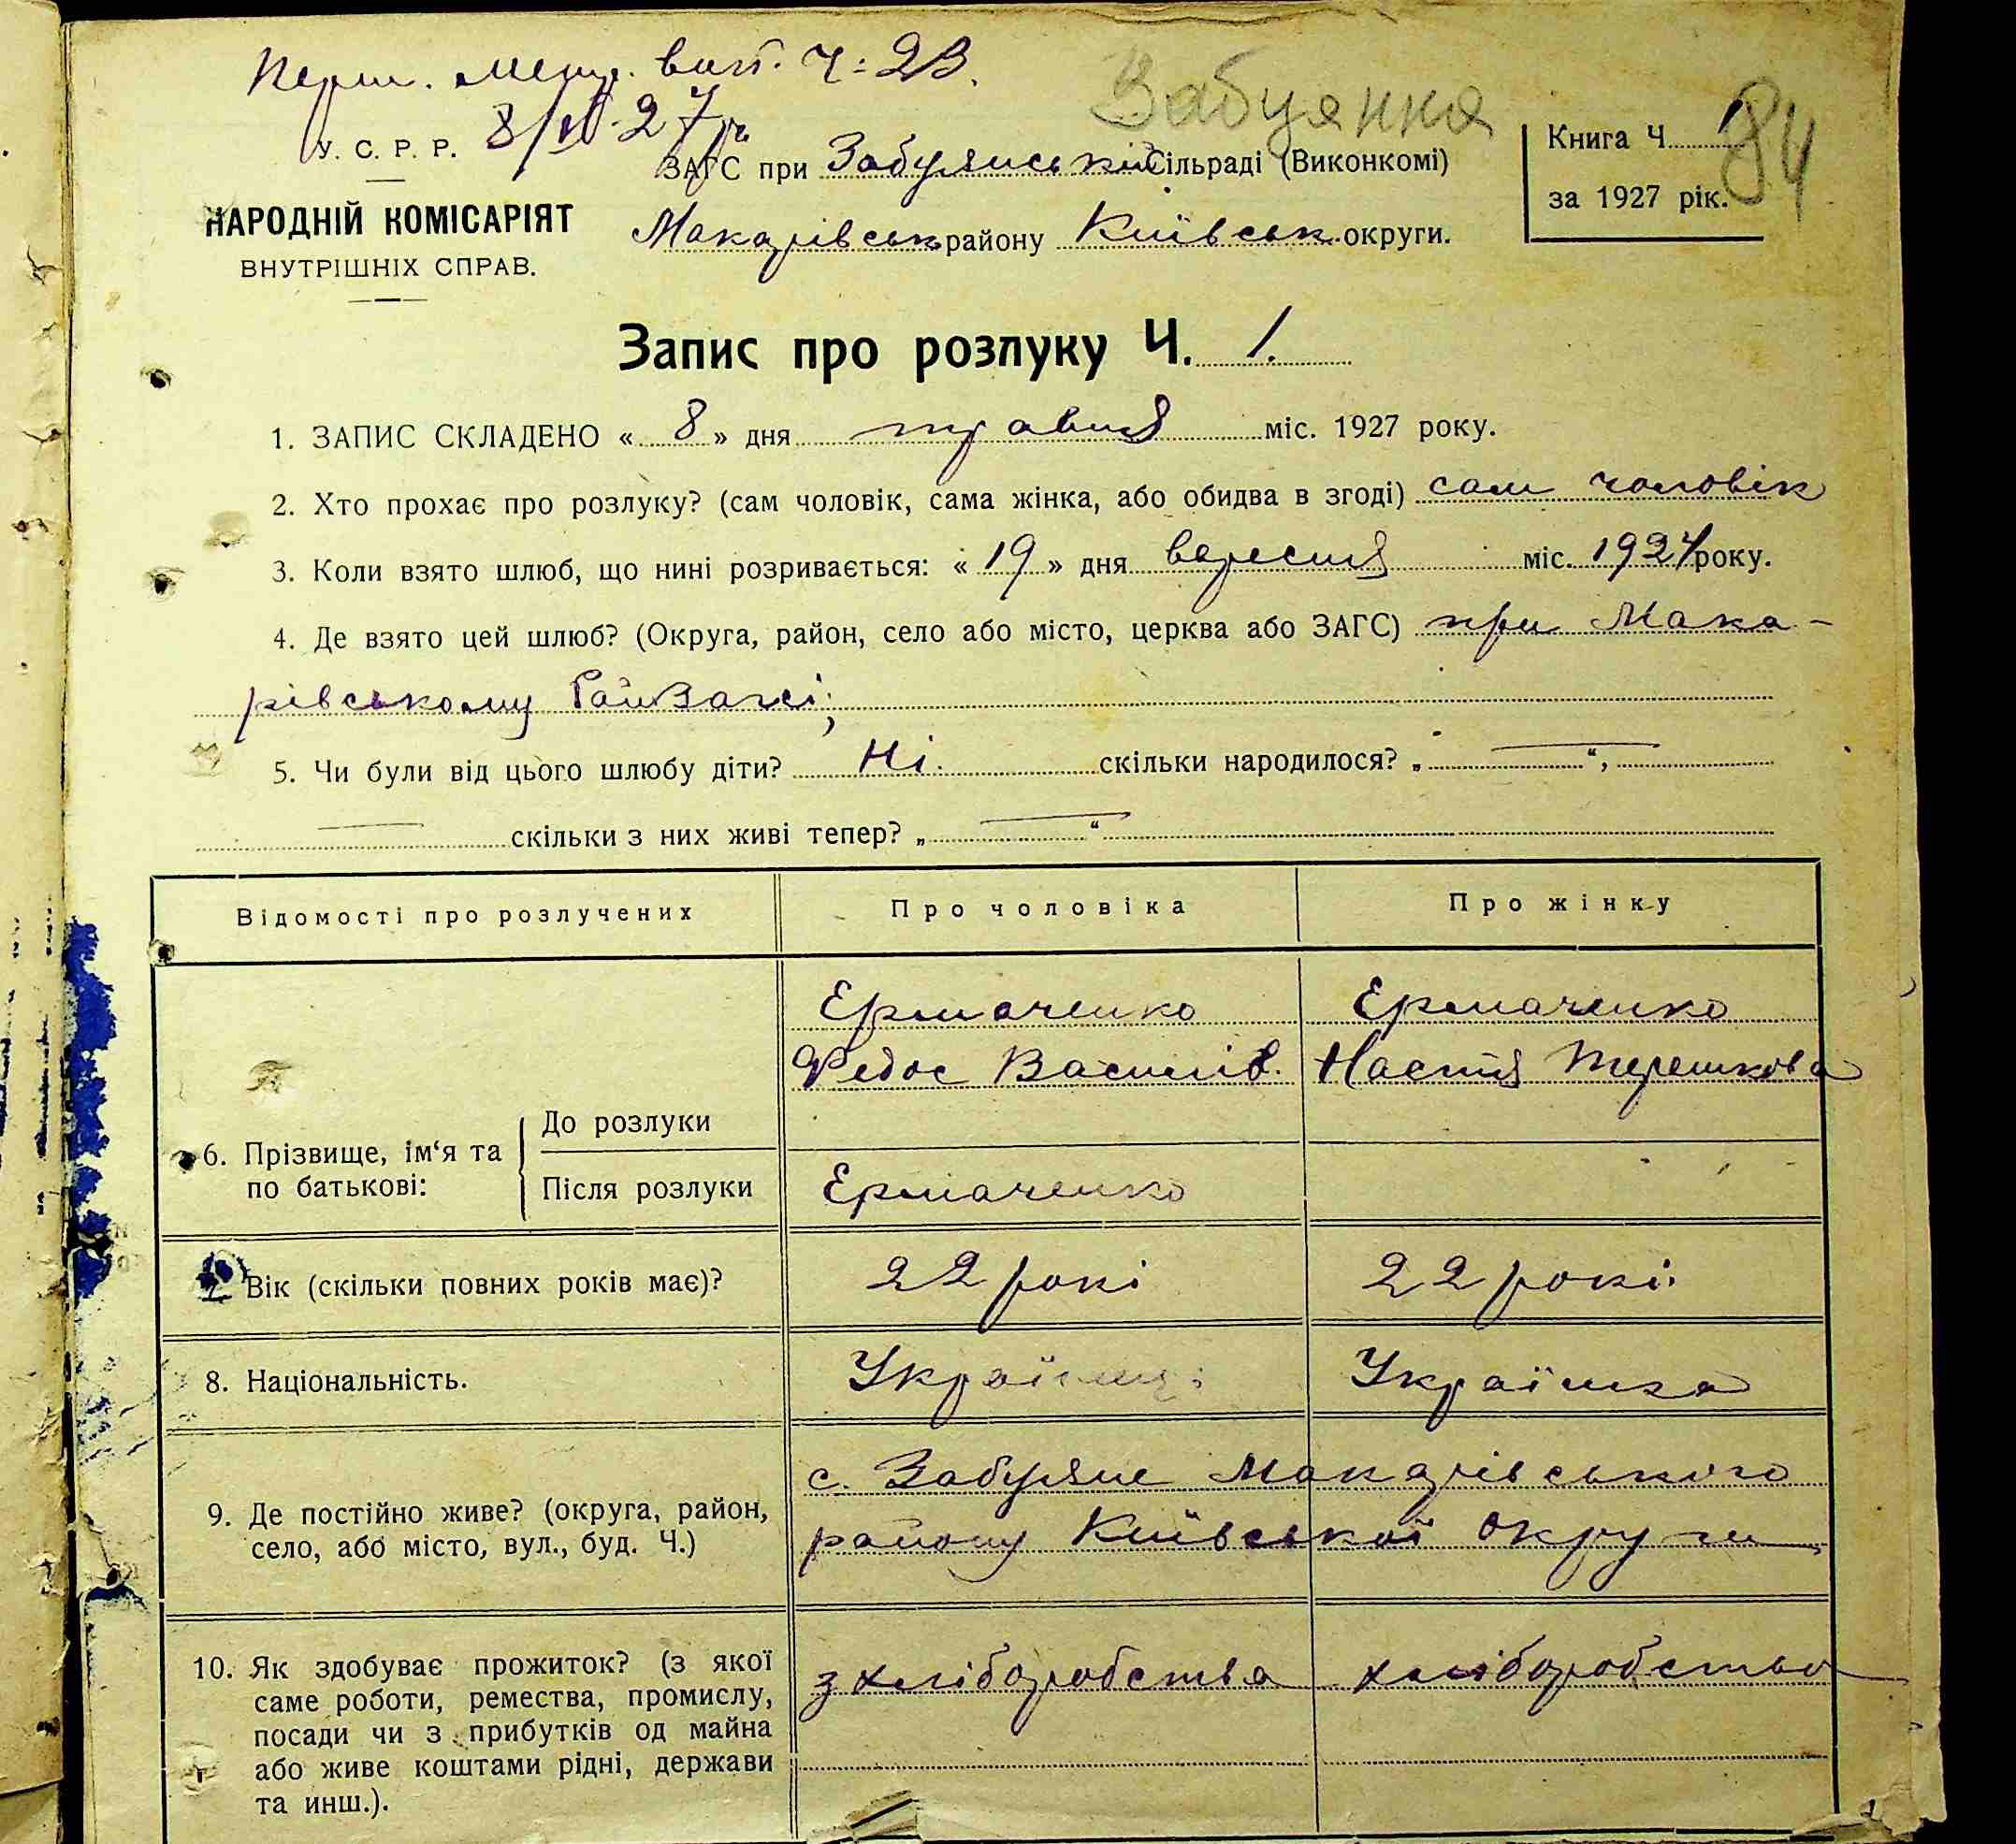 вип. Ч: 2В.
Забуянка
У. С. Р. Р.
ЗАГС при Забуянській Сільраді (Виконкомі)
Книга Ч 1
84
НАРОДНІЙ КОМІСАРІЯТ
Макарівськ району Київськ. округи.
за 1927 рік.
ВНУТРІШНІХ СПРАВ.
Запис про розлуку Ч. 1.
1. ЗАПИС СКЛАДЕНО « 8 » дня травня міс. 1927 року.
2. Хто прохає про розлуку? (сам чоловік, сама жінка, або обидва в згоді) сам чоловік
3. Коли взято шлюб, що нині розривається: « 19 » дня вересня міс. 1924 року.
4. Де взято цей шлюб? (Округа, район, село або місто, церква або ЗАГС) при Мака-
рівському РайЗагсі;
5. Чи були від цього шлюбу діти? Ні. скільки народилося? „ — “,
— скільки з них живі тепер? „ — “
Відомості про розлучених
Про чоловіка
Про жінку
6. Прізвище, ім‘я та
по батькові:
До розлуки
Ермаченко
Федос Василів.
Ермаченко
Настя Терешкова
Після розлуки
Ермаченко
7. Вік (скільки повних років має)?
22 рокі
22 рокі.
8. Національність.
Українец
Українка
9. Де постійно живе? (округа, район,
село, або місто, вул., буд. Ч.)
с. Забуяне Макарівського
району Київської округи
10. Як здобуває прожиток? (з якої
саме роботи, ремества, промислу,
посади чи з прибутків од майна
або живе коштами рідні, держави
та инш.).
з хліборобства
хліборобства